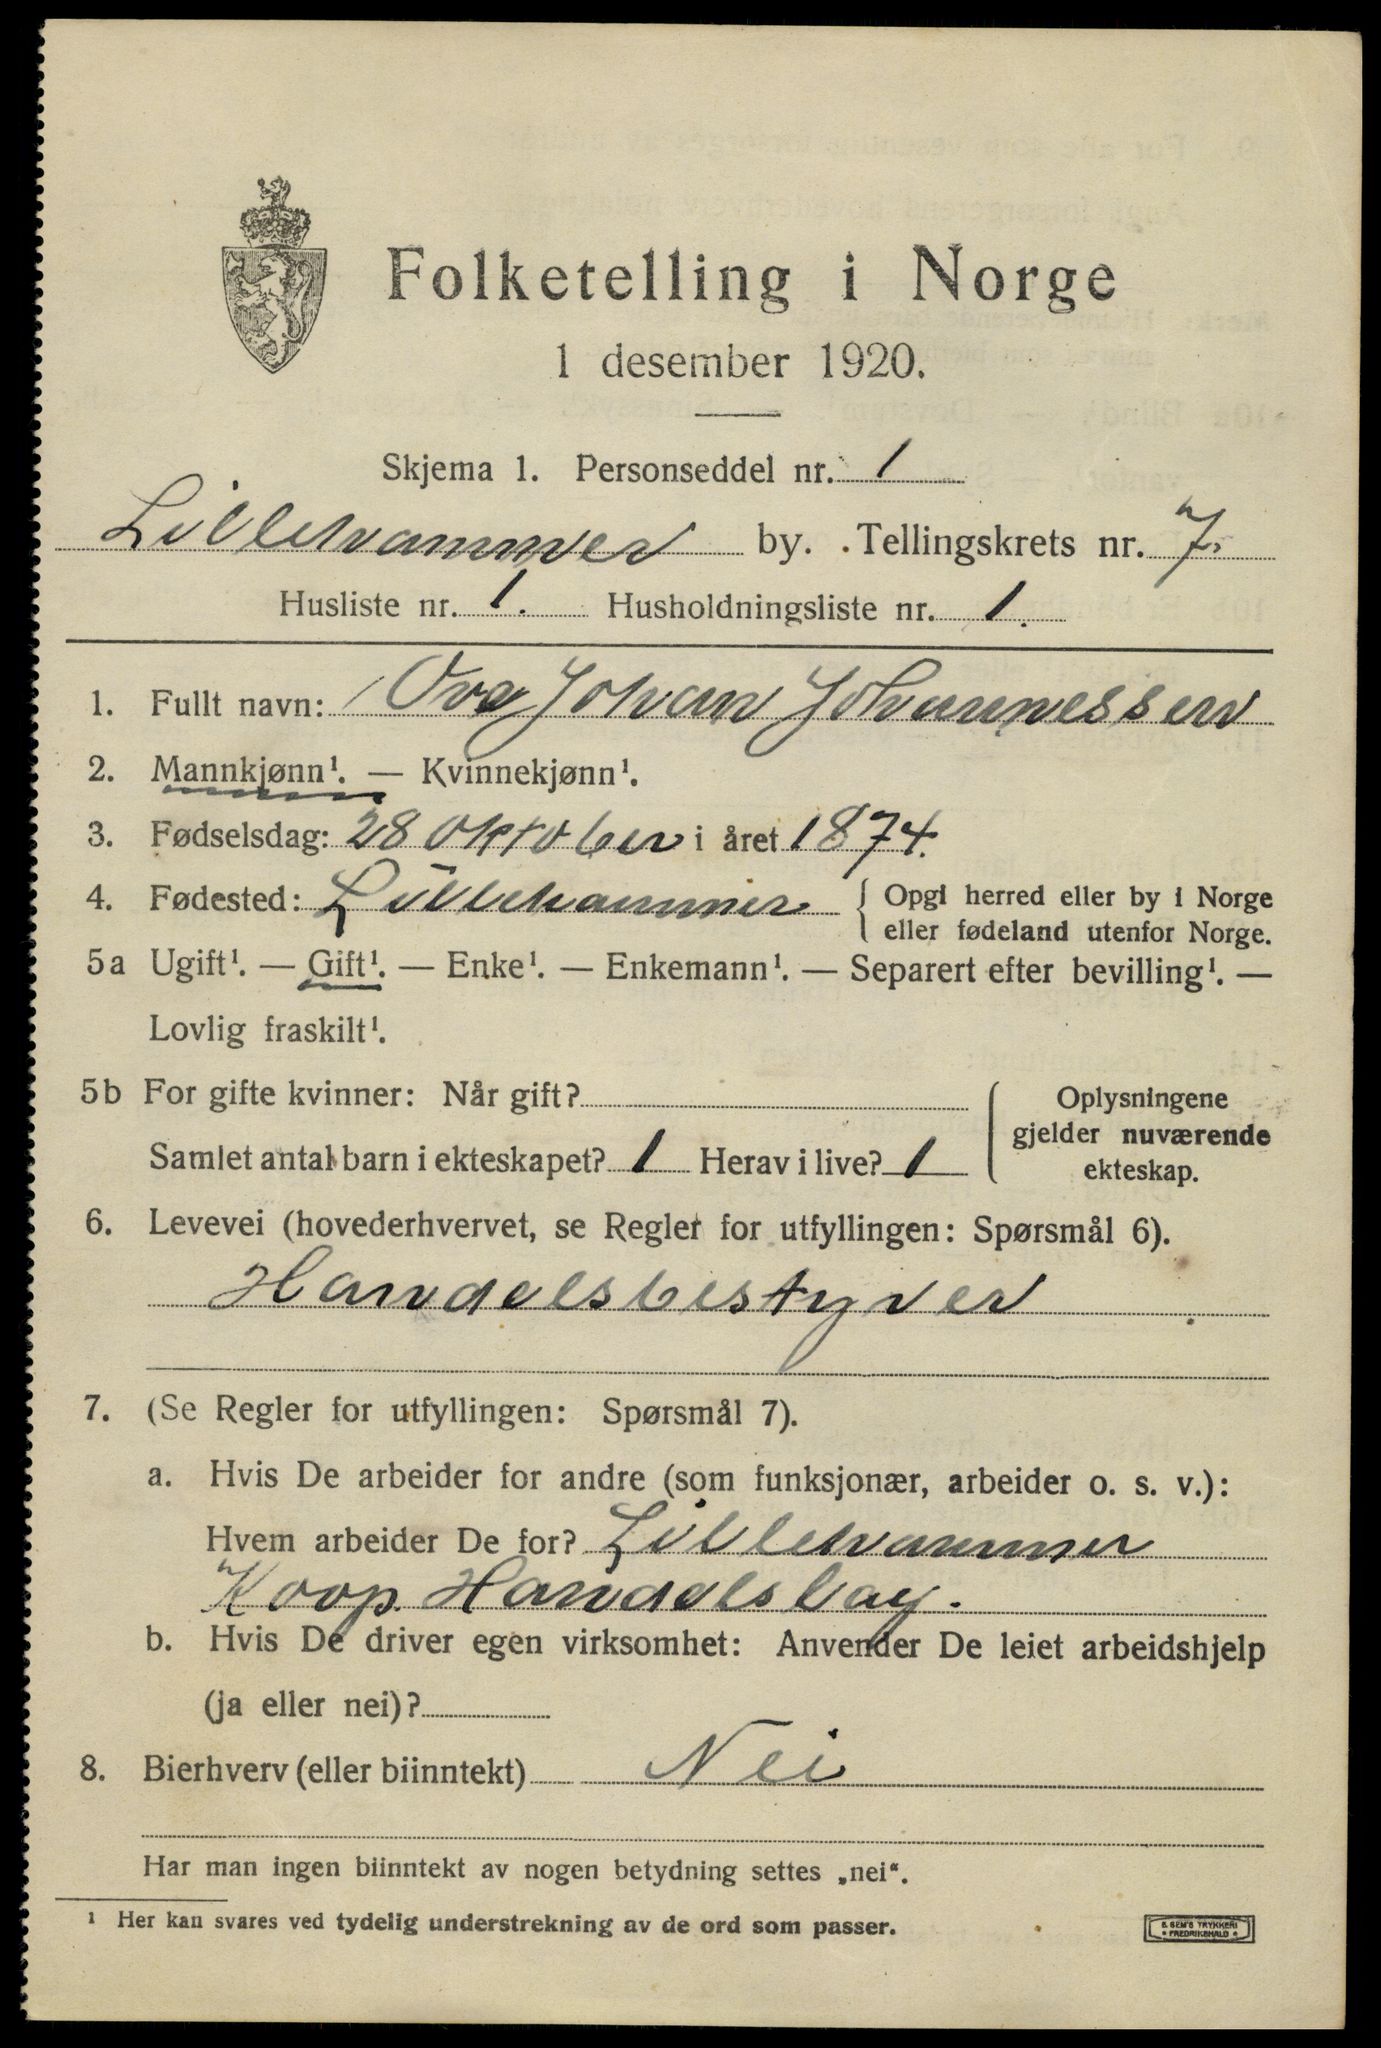 Folketelling i Norge
1 desember 1920.
Skjema 1. Personseddel nr. 1
Lillehammer by. Tellingskrets nr. 7.
Husliste nr. 1. Husholdningsliste nr. 1.
1. Fullt navn: Ove Johan Johannessen
2. Mannkjønn¹. — Kvinnekjønn¹.
3. Fødselsdag: 28 oktober i året 1874.
4. Fødested: Lillehammer { Opgi herred eller by i Norge
eller fødeland utenfor Norge.
5a Ugift¹. — Gift¹. — Enke¹. — Enkemann¹. — Separert efter bevilling¹. —
Lovlig fraskilt¹.
5b For gifte kvinner: Når gift?
Samlet antal barn i ekteskapet? 1 Herav i live? 1
Oplysningene
gjelder nuværende
ekteskap.
6. Levevei (hovederhvervet, se Regler for utfyllingen: Spørsmål 6).
Handelsbestyrer
7. (Se Regler for utfyllingen: Spørsmål 7).
a. Hvis De arbeider for andre (som funksjonær, arbeider o. s. v.):
Hvem arbeider De for? Lillehammer
Koop. Handelslag.
b. Hvis De driver egen virksomhet: Anvender De leiet arbeidshjelp
(ja eller nei)?
8. Bierhverv (eller biinntekt) Nei
Har man ingen biinntekt av nogen betydning settes „nei“.
¹ Her kan svares ved tydelig understrekning av de ord som passer.
E. SEM'S TRYKKERI
* FREDRIKSHALD *